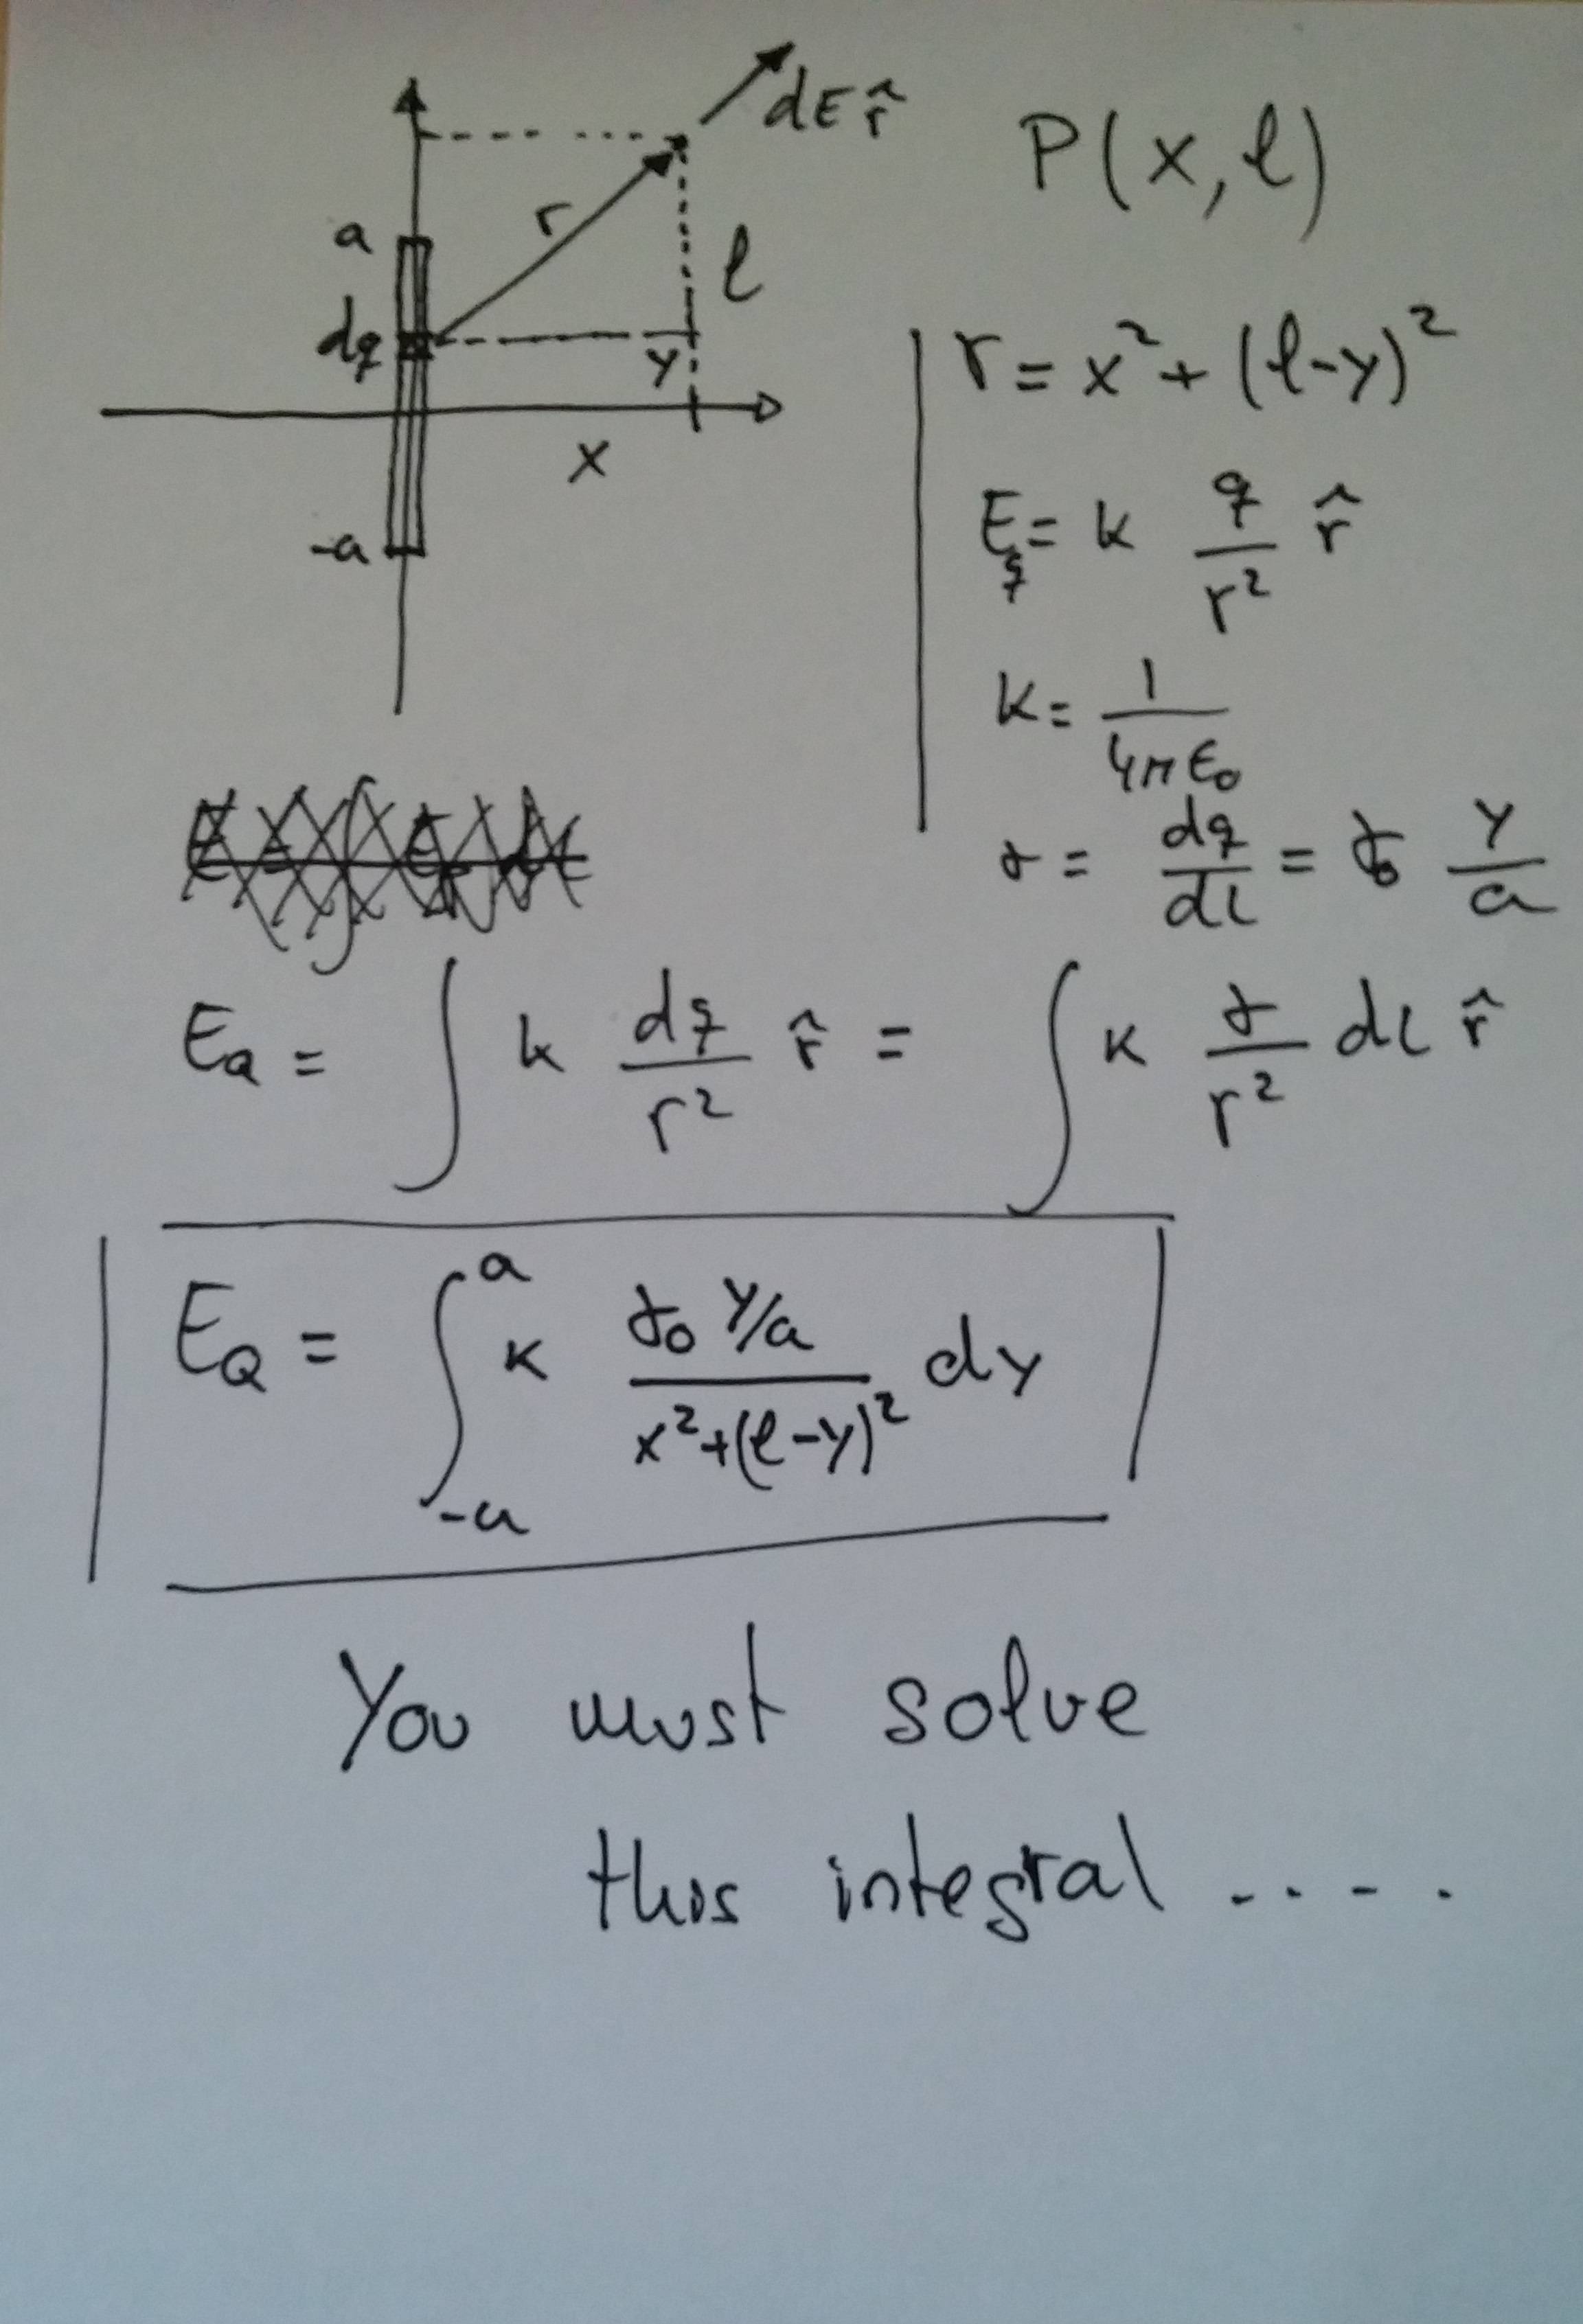 dE r̂
P(x,ℓ)
a
r
ℓ
dq
y
x
-a
r = x² + (ℓ-y)²
E_q = k q/r² r̂
k = 1/4πε₀
γ = dq/dl = γ₀ y/a
E_Q = ∫ k dq/r² r̂ = ∫ k γ/r² dl r̂
E_Q = ∫_{-a}^{a} k γ₀ y/a / x²+(ℓ-y)² dy
You must solve
this integral . . . .